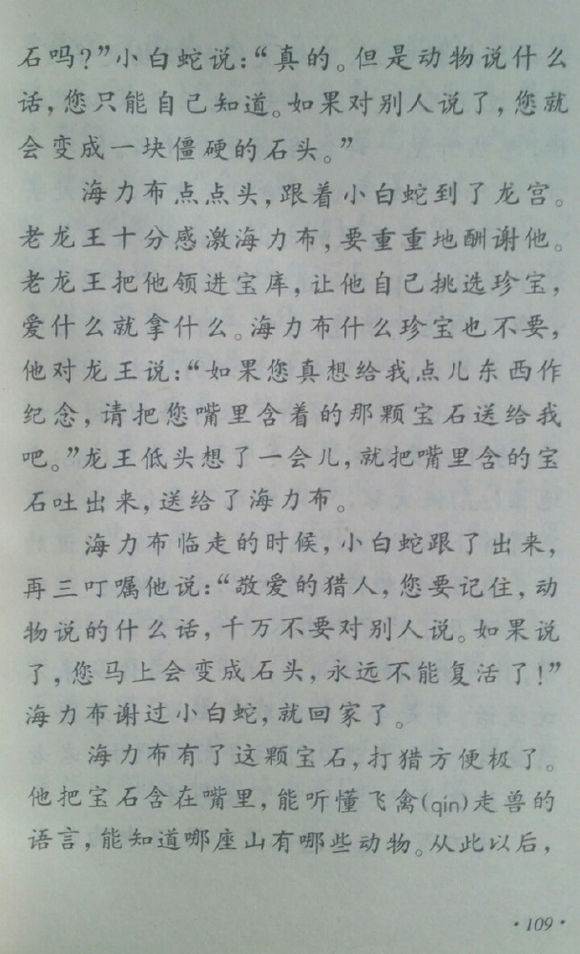 石吗?”小白蛇说:“真的。但是动物说什么
话,您只能自己知道。如果对别人说了,您就
会变成一块僵硬的石头。”
海力布点点头,跟着小白蛇到了龙宫。
老龙王十分感激海力布,要重重地酬谢他。
老龙王把他领进宝库,让他自己挑选珍宝,
爱什么就拿什么。海力布什么珍宝也不要,
他对龙王说:“如果您真想给我点儿东西作
纪念,请把您嘴里含着的那颗宝石送给我
吧。”龙王低头想了一会儿,就把嘴里含的宝
石吐出来,送给了海力布。
海力布临走的时候,小白蛇跟了出来,
再三叮嘱他说:“敬爱的猎人,您要记住,动
物说的什么话,千万不要对别人说。如果说
了,您马上会变成石头,永远不能复活了!”
海力布谢过小白蛇,就回家了。
海力布有了这颗宝石,打猎方便极了。
他把宝石含在嘴里,能听懂飞禽(qín)走兽的
语言,能知道哪座山有哪些动物。从此以后,
·109·